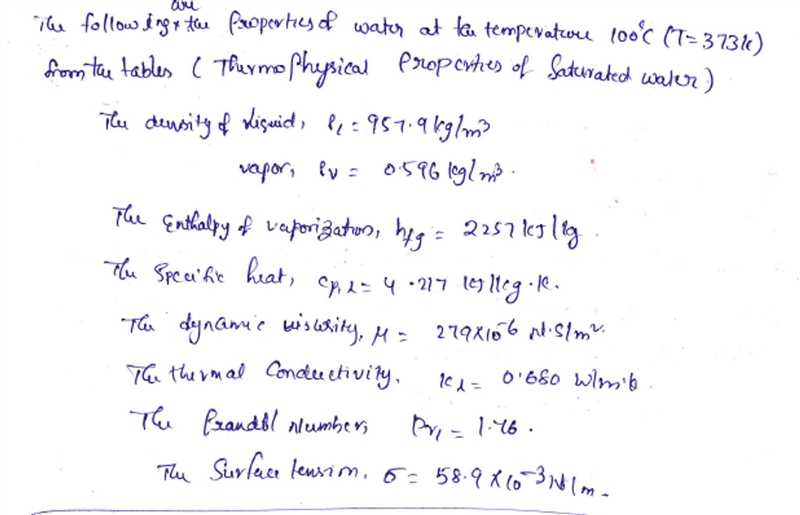 are
The following the properties of water at the temperature 100°C (T=373K)
from the tables (Thermophysical Properties of Saturated water)
The density of liquid, ρl = 957.9 kg/m³
vapor, ρv = 0.596 kg/m³.
The Enthalpy of vaporization, hfg = 2257 kJ/kg.
The Specific heat, cp,l = 4.217 kJ/kg·K.
The dynamic viscosity, μ = 279×10⁻⁶ N·S/m².
The thermal Conductivity, kl = 0.680 W/m·k.
The Prandtl Number, Prl = 1.76.
The Surface tension, σ = 58.9×10⁻³ N/m.